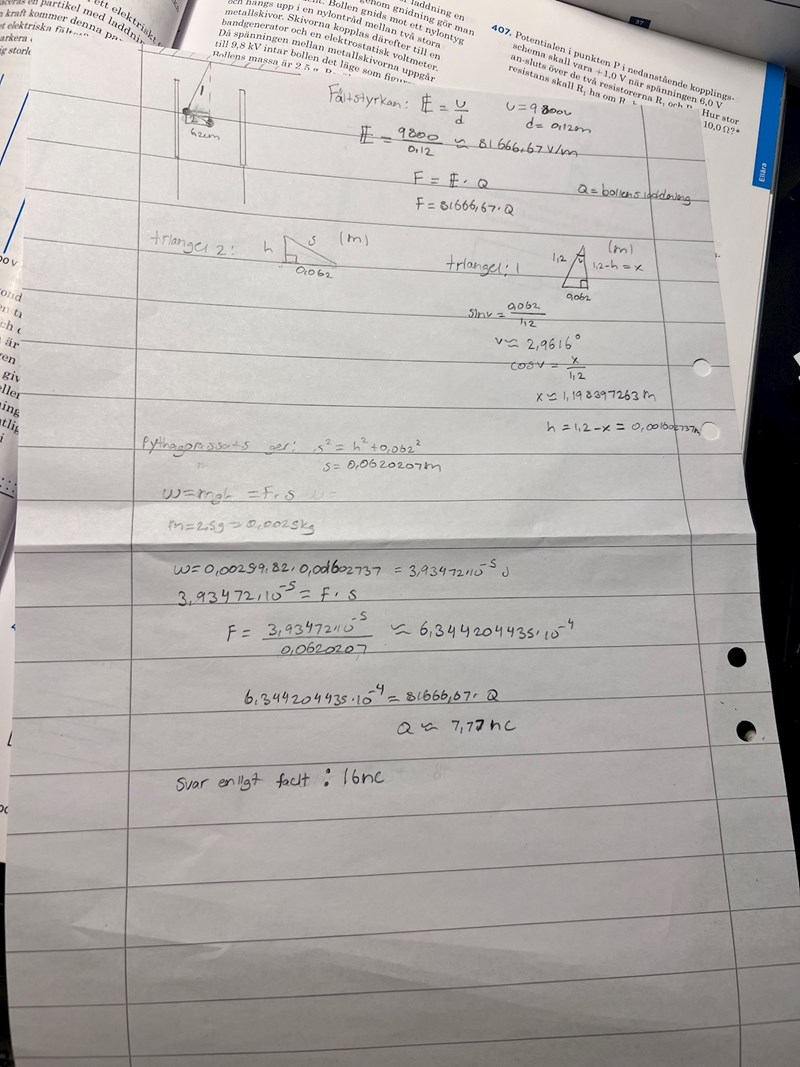 ett elektriskt
laceras en partikel med laddnin
kraft kommer denna pa
t elektriska
genom gnidning gör man
och hängs upp i en nylontråd mellan två stora
metallskivor. Skivorna kopplas därefter till en
bandgenerator och en elektrostatisk voltmeter.
Då spänningen mellan metallskivorna uppgår
till 9,8 kV intar bollen det läge som
Bollens massa är 2,5 g.
37
407. Potentialen i punkten P i nedanstående kopplings-
schema skall vara +1,0 V när spänningen 6,0 V
an-sluts över de två resistorerna R, och
resistans skall R, ha om
Hur stor
10,0 Ω?*
Ellära
1
2
6,2cm
Fältstyrkan: E = U/d
U = 9800V
d = 0,12m
E = 9800/0,12 ≈ 81666,67 V/m
F = E · Q
Q = bollens laddning
F = 81666,67 · Q
triangel 2: h s (m)
0,062
triangel: 1
1,2 v (m)
1,2-h = x
0,062
sinv = 0,062/1,2
v ≈ 2,9616°
cosv = x/1,2
x ≈ 1,198397263 m
h = 1,2 - x = 0,001602737m
Pythagorassats ger: s² = h² + 0,062²
s = 0,0620207m
w = mgh = F · s
m = 2,5g = 0,0025kg
w = 0,0025·9,82·0,001602737 = 3,93472·10⁻⁵ J
3,93472·10⁻⁵ = F · s
F = 3,93472·10⁻⁵/0,0620207 ≈ 6,344204435·10⁻⁴
6,344204435·10⁻⁴ = 81666,67 · Q
Q ≈ 7,77 nC
Svar enligt facit: 16nC